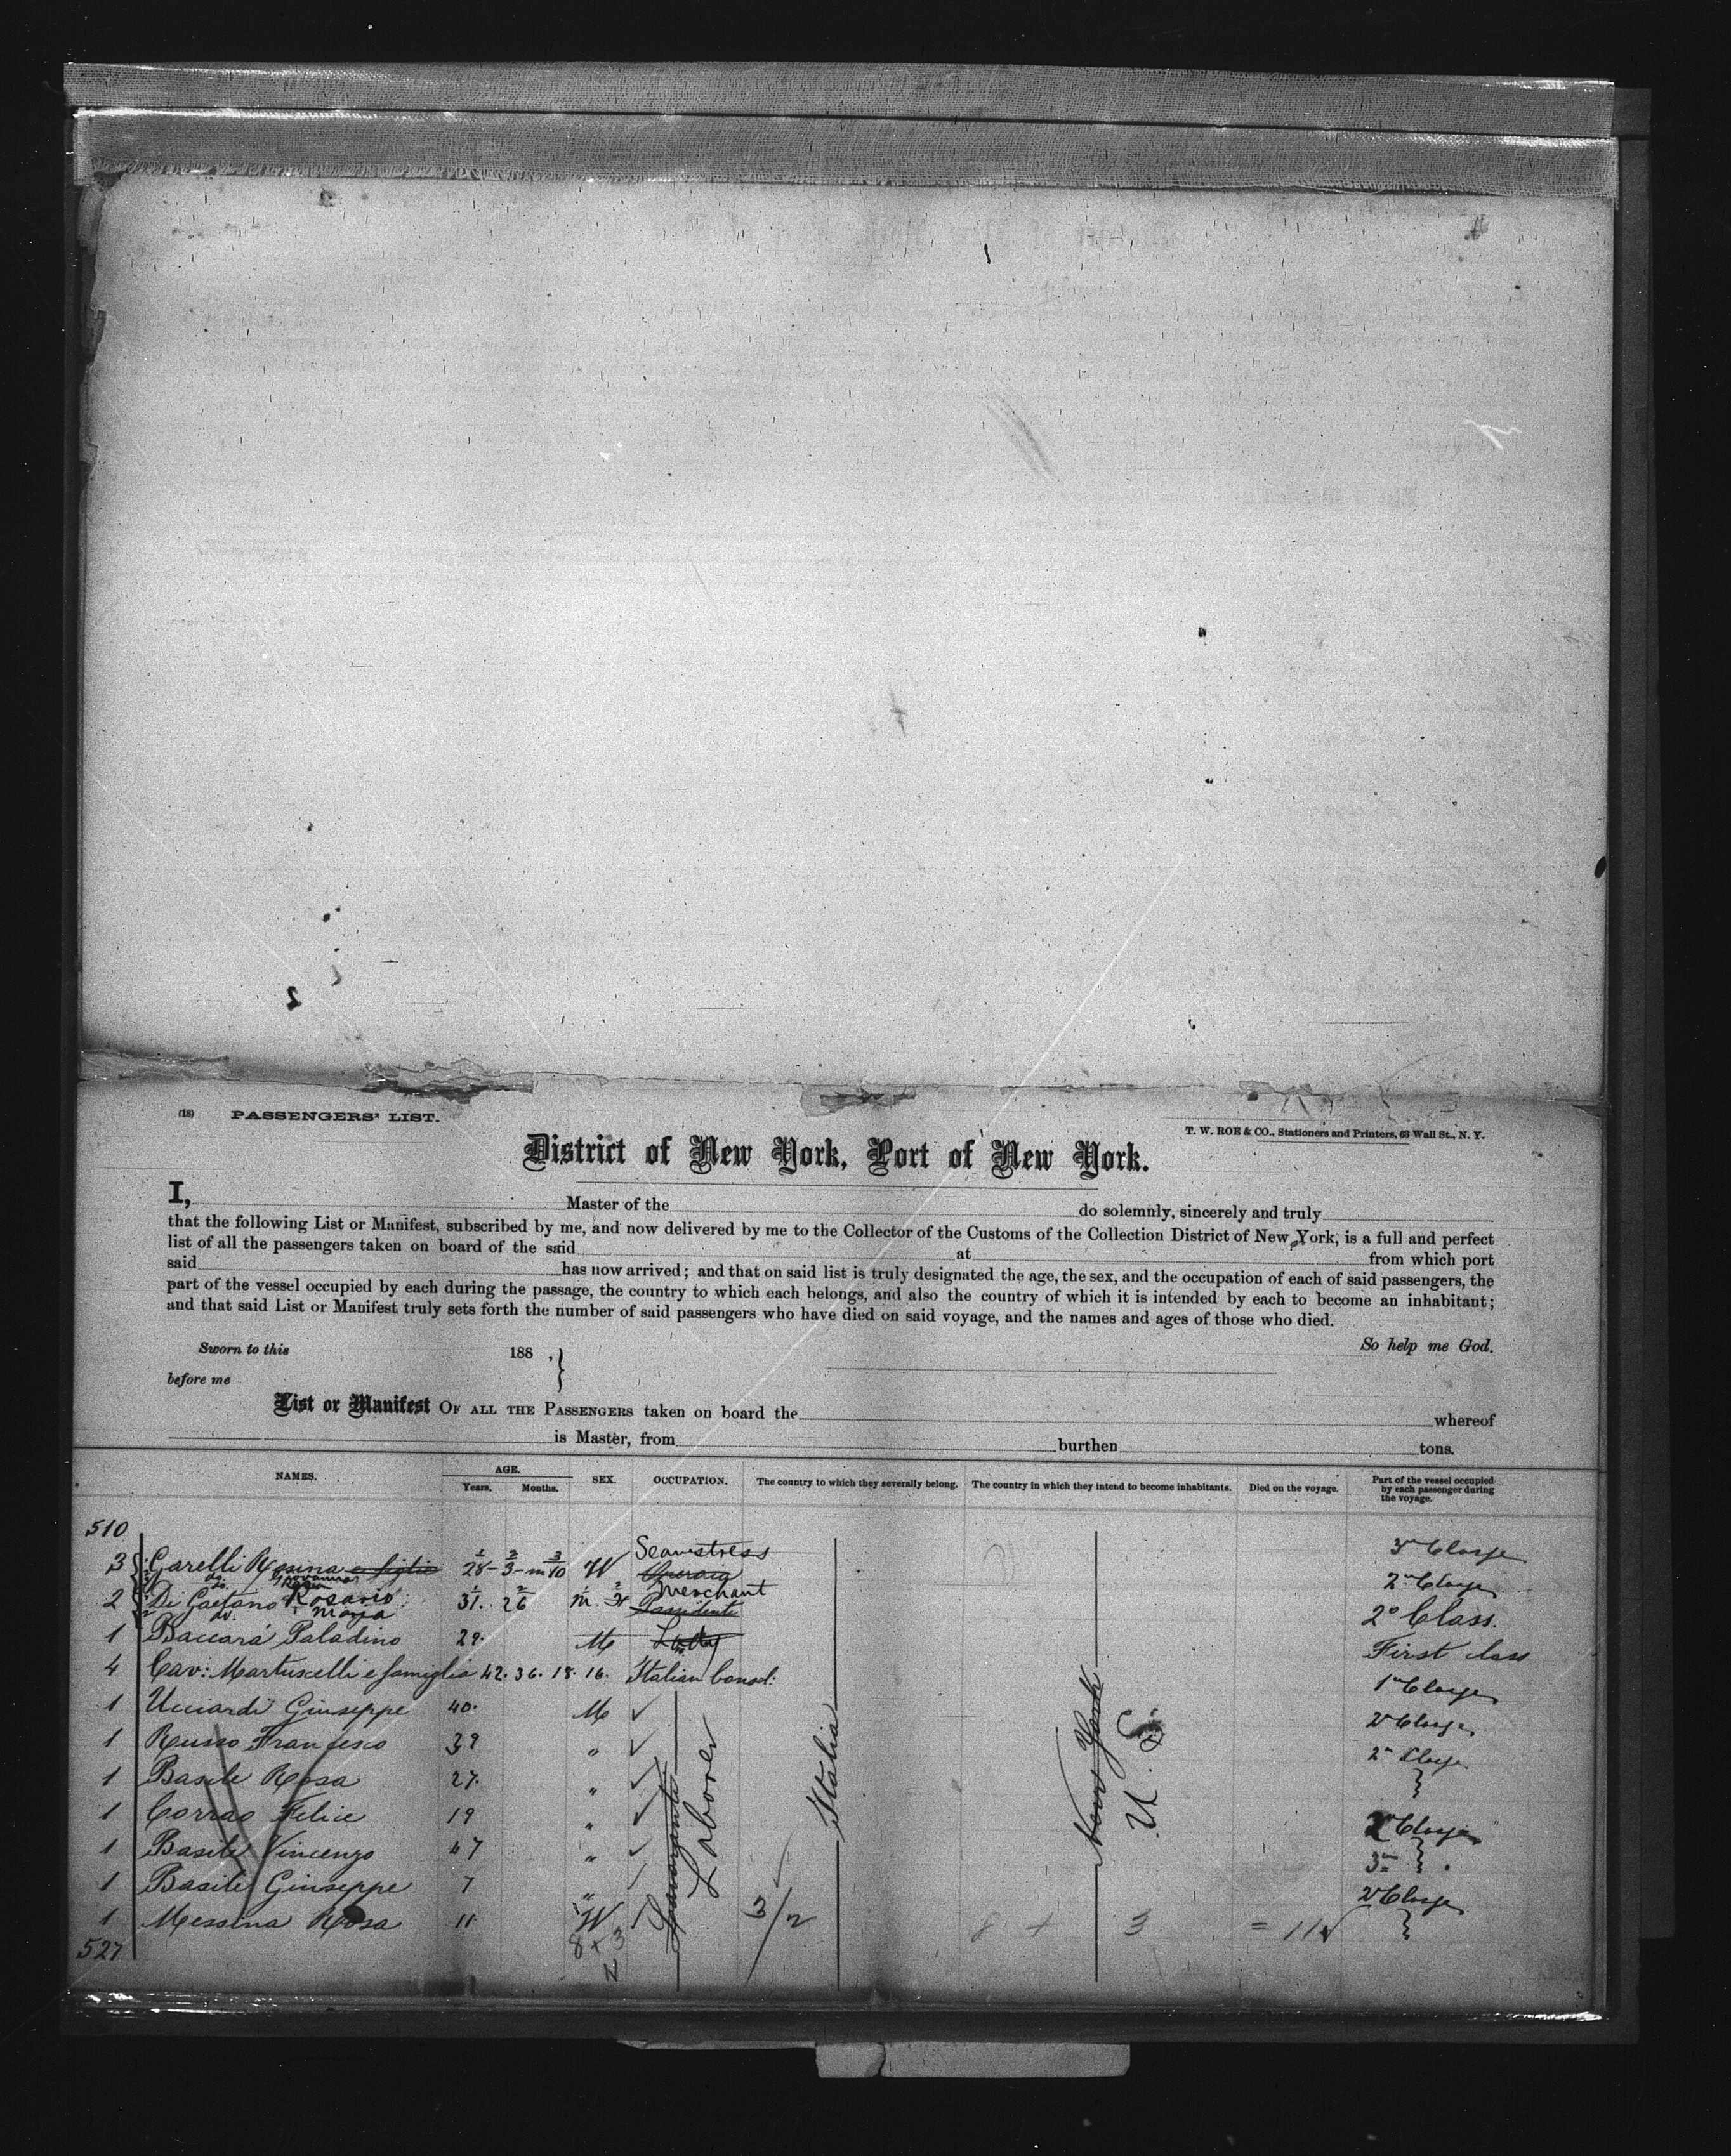 (18) PASSENGERS' LIST.
T. W. ROE & CO., Stationers and Printers, 63 Wall St., N. Y.
District of New York, Port of New York.
I, Master of the do solemnly, sincerely and truly
that the following List or Manifest, subscribed by me, and now delivered by me to the Collector of the Customs of the Collection District of New York, is a full and perfect
list of all the passengers taken on board of the said at from which port
said has now arrived; and that on said list is truly designated the age, the sex, and the occupation of each of said passengers, the
part of the vessel occupied by each during the passage, the country to which each belongs, and also the country of which it is intended by each to become an inhabitant;
and that said List or Manifest truly sets forth the number of said passengers who have died on said voyage, and the names and ages of those who died.
So help me God.
Sworn to this 188 ,
before me
List or Manifest OF ALL THE PASSENGERS taken on board the whereof
is Master, from burthen tons.
NAMES. AGE. Years. Months. SEX. OCCUPATION. The country to which they severally belong. The country in which they intend to become inhabitants. Died on the voyage. Part of the vessel occupied by each passenger during the voyage.
510
3 Garelli Rosina e figlie 28 - 3 - m 10 W Seamstress 3ª Classe
do. Giovanna
do. Rosa
2 Di Gaetano Rosario 31. 26 m Merchant Possidente 2ª Classe
do. Maria
1 Baccará Paladino 29. M Lady 2° Class.
4 Cav: Martuscelli e famiglia 42. 36. 18. 16. Italian Consol: First class
1 Ucciardi Giuseppe 40. M 1ª Classe
1 Russo Francesco 39 " 2ª Classe
1 Basile Rosa 27. " 2ª Classe
1 Corrao Felice 19 "
1 Basile Vincenzo 47 " 2ª Classe
1 Basile Giuseppe 7 " 3ª
1 Messina Rosa 11 W 2ª Classe
527
Laborer
Italia
New York
U. S.
8 + 3
3/2
8 + 3 = 11